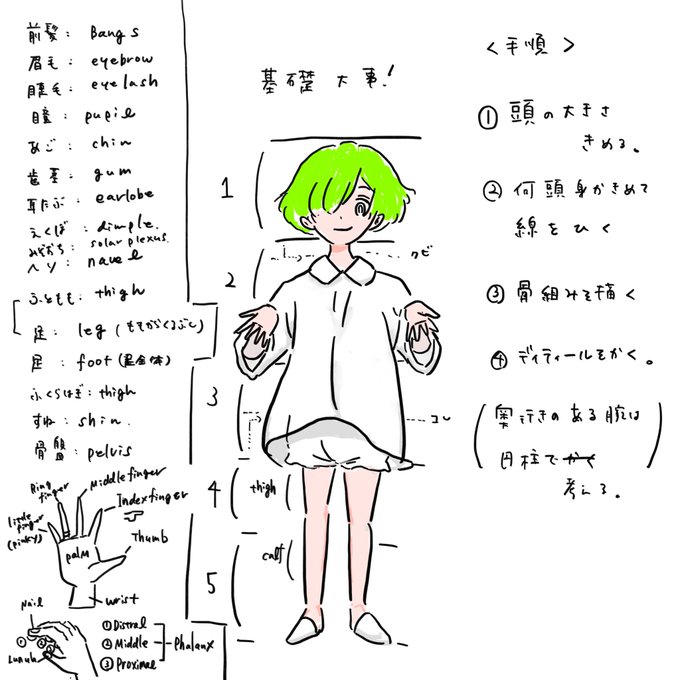 前髪 : Bangs
眉毛 : eyebrow
睫毛 : eyelash
瞳 : pupil
あご : chin
歯茎 : gum
耳たぶ : earlobe
えくぼ : dimple.
みぞおち : solar plexus.
ヘソ : navel
ふともも : thigh
足 : leg (ももからくるぶし)
足 : foot (足全体)
ふくらはぎ : thigh
すね : shin.
骨盤 : pelvis
Ring finger
Middle finger
Index finger
little finger (pinky)
Thumb
palm
wrist
Nail
Lunula
① ② ③
①Distral
②Middle
③Proximal
Phalanx
基礎大事!
1
2
3
4
5
クビ
コシ
thigh
calf
<手順>
①頭の大きさ
きめる。
②何頭身かきめて
線をひく
③骨組みを描く
④ディティールをかく。
(奥行きのある腕は
円柱でかく
考える。)